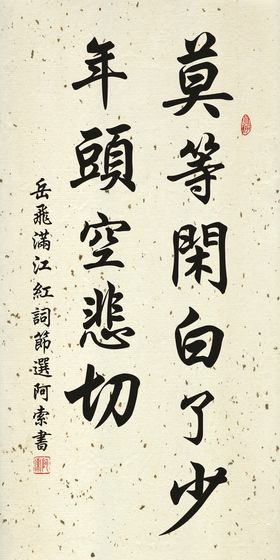 莫等閑白了少
年頭空悲切
岳飛滿江紅詞節選阿索書